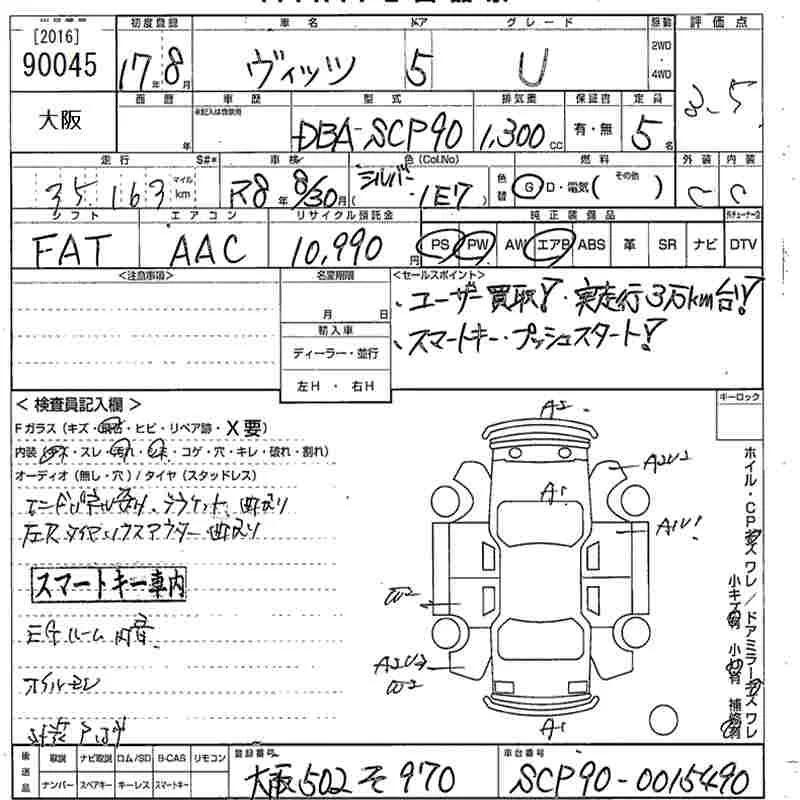 初度登録 車名 ドア グレード 原動 評価点
[2016]
90045
17年 8月 ヴィッツ 5 U 2WD ・ 4WD
3.5
西暦 車歴 型式 排気量 保証書 定員
大阪 年 ※記入は自家用 DBA-SCP90 1,300cc 有・無 5名
走行 S#* 車検 色(Col.No) 燃料 外装 内装
35,163 マイル km R8年 8/30月 シルバー(1E7) 色替 G D・電気( その他 ) C C
シフト エアコン リサイクル預託金 純正装備品
FAT AAC 10,990円 PS PW AW エアB ABS 革 SR ナビ DTV
<注意事項> 名変期限 <セールスポイント>
月 日
、ユーザー買取!・実走行3万km台!!
輸入車
、スマートキー・プッシュスタート!
ディーラー・並行
左H ・ 右H
< 検査員記入欄 > キーロック
Fガラス(キズ・飛石・ヒビ・リペア跡・X要)
内装(キズ・スレ・汚れ・シミ・コゲ・穴・キレ・破れ・割れ)
オーディオ(無し・穴)/タイヤ(スタッドレス)
スマートキー車内
EGルーム内音
オイルモレ
A2
A1
A2U2
A1U1
W2
A2U2
W2
A1
ホイル・CPキズ ワレ/ドアミラーキズ ワレ
小キズ有 小凹有 補修有
後送品 取説 ナビ取説 ロム/SD B-CAS リモコン 登録番号 車台番号
ナンバー スペアキー キーレス スマートキー 大阪502そ970 SCP90-0015490